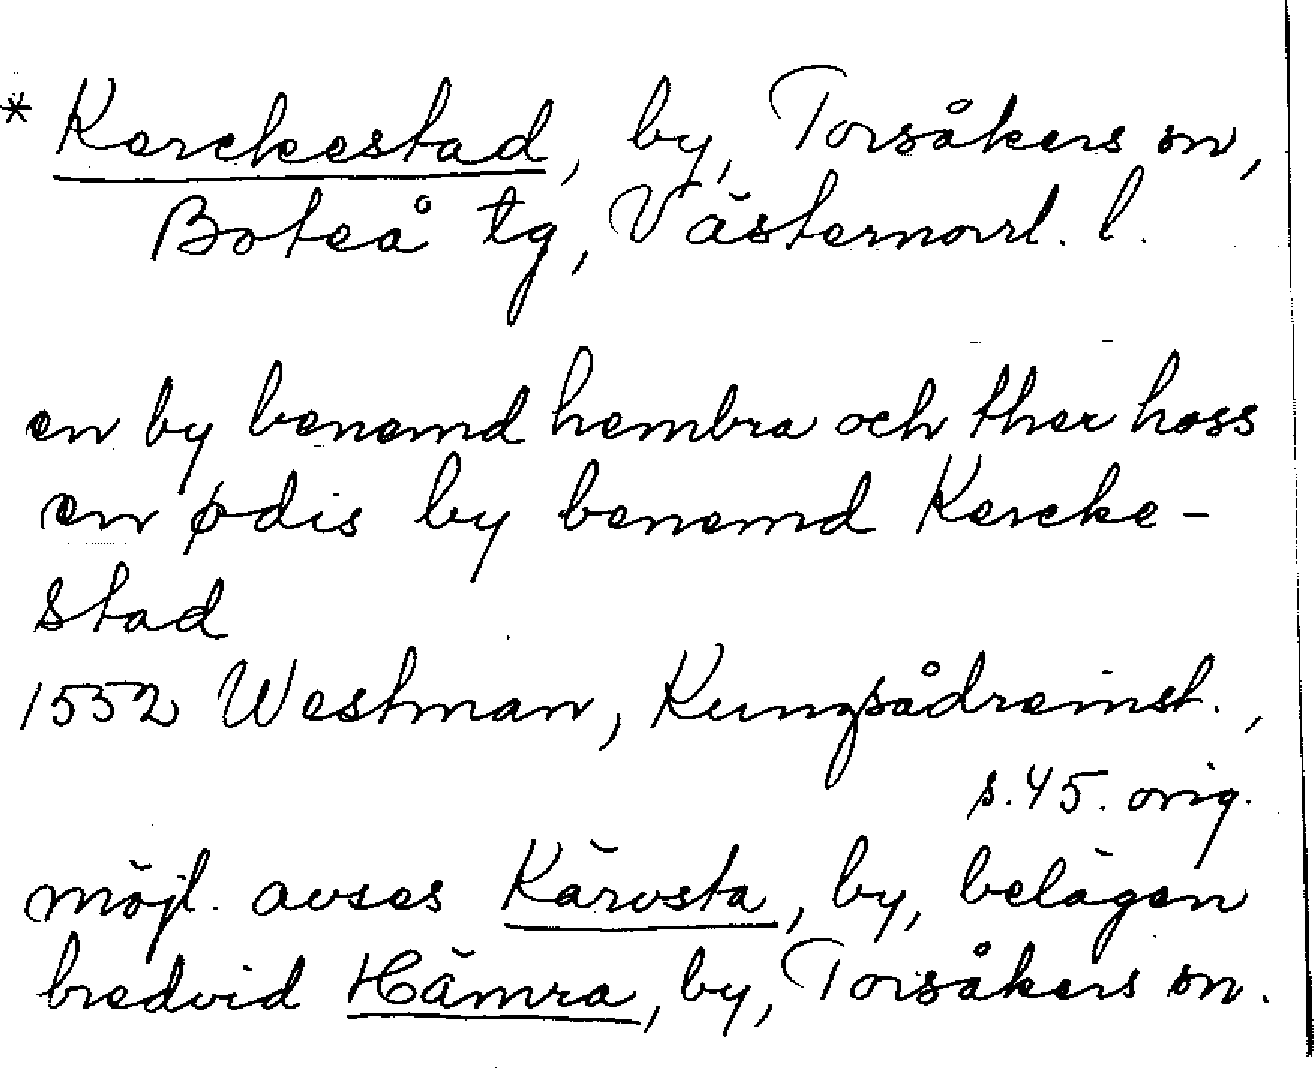 * Kerckestad, by, Torsåkers sn,
Boteå tg, Västernorrl. l.
en by benemd hembra och ther hoss
en ødis by benemd Kercke-
stad
1552 Westman, Kungsådreinst.,
s. 45. orig.
möjl. avses Kärvsta, by, belägen
bredvid Hämra, by, Torsåkers sn.